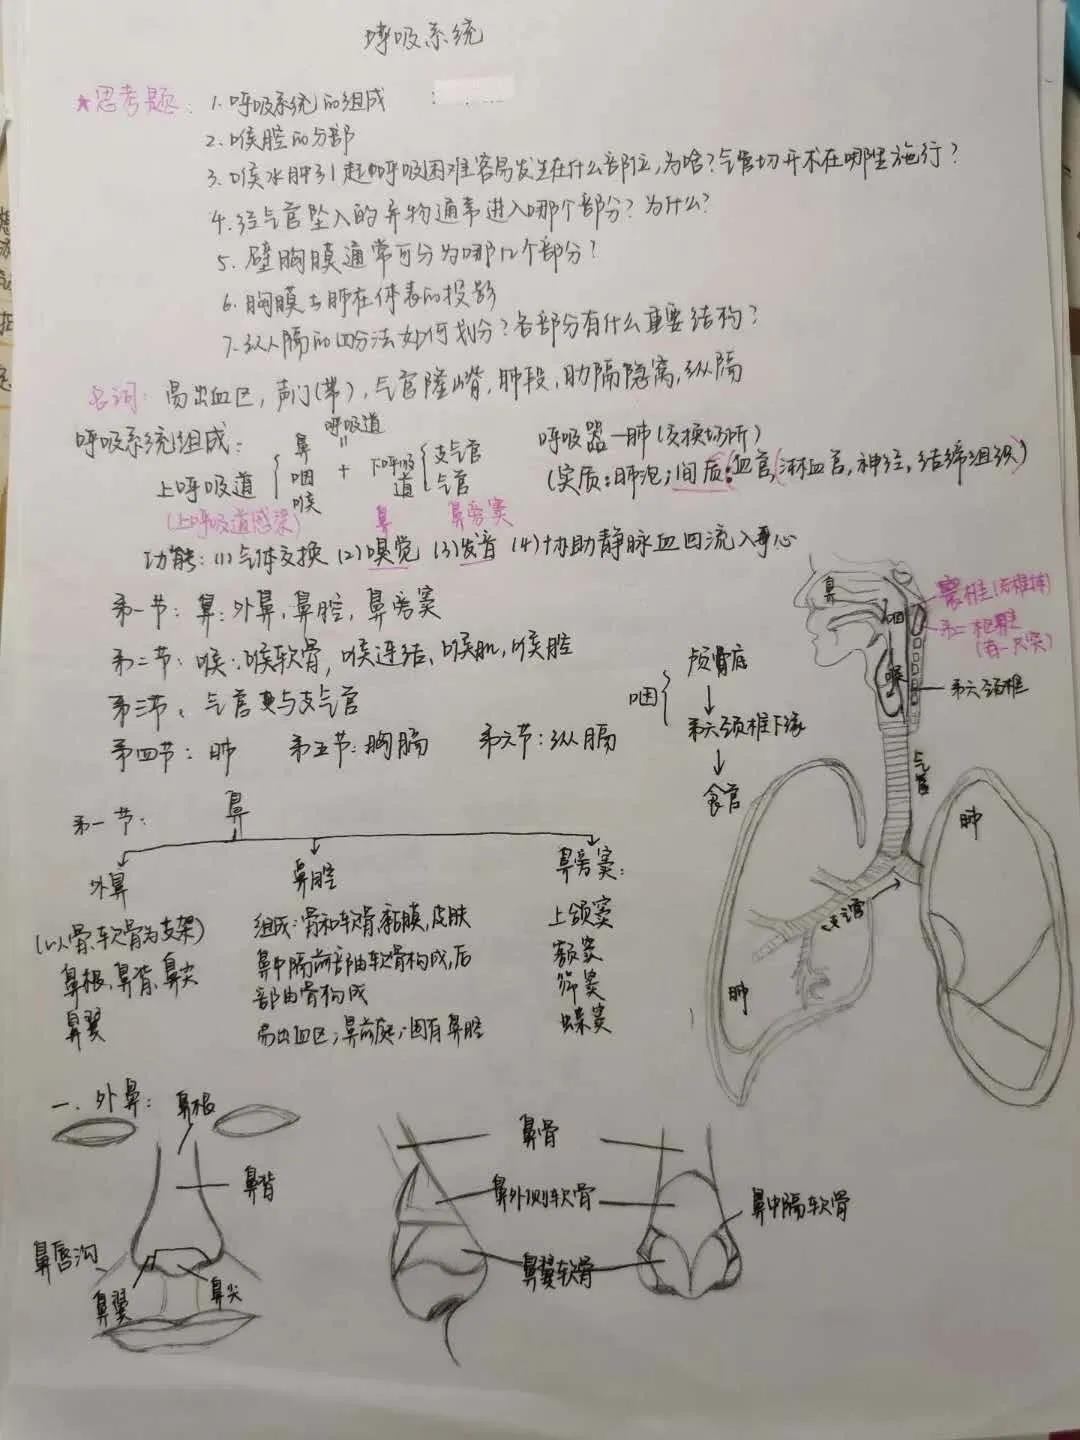 呼吸系统
★思考题: 1.呼吸系统的组成 :
2.喉腔的分部
3.喉水肿引起的呼吸困难容易发生在什么部位,为啥?气管切开术在哪里施行?
4.经气管坠入的异物通常进入哪个部分?为什么?
5.壁胸膜通常可分为哪几个部分?
6.胸膜与肺在体表的投影
7.纵隔的四分法如何划分?各部分有什么重要结构?
名词: 易出血区,声门(带),气管隆嵴,肺段,肋隔隐窝,纵隔
呼吸系统组成:
呼吸道
=
上呼吸道 { 鼻 咽 喉 + 下呼吸道 { 支气管 气管
(上呼吸道感染)
呼吸器—肺(交换场所)
(实质:肺泡;间质:血管,淋巴管,神经,结缔组织)
鼻 鼻旁窦
功能:(1)气体交换 (2)嗅觉 (3)发音 (4)协助静脉血回流入心
第一节: 鼻:外鼻,鼻腔,鼻旁窦
第二节: 喉:喉软骨,喉连结、喉肌,喉腔
第三节、气管与支气管
第四节: 肺 第五节:胸膈 第六节:纵膈
咽 {
颅骨底
↓
第六颈椎下缘
↓
食管
鼻
咽
喉
寰椎(无椎体)
第二枢椎
(有一尺突)
第六颈椎
气管
支气管
肺
肺
第一节: 鼻
外鼻
(以骨、软骨为支架)
鼻根,鼻背,鼻尖
鼻翼
鼻腔
组成:骨和软骨,黏膜,皮肤
鼻中隔前部由软骨构成,后
部由骨构成
易出血区;鼻前庭;固有鼻腔
鼻旁窦:
上颌窦
额窦
筛窦
蝶窦
一、外鼻:
鼻根
鼻背
鼻唇沟
鼻翼
鼻尖
鼻骨
鼻外侧软骨
鼻翼软骨
鼻中隔软骨